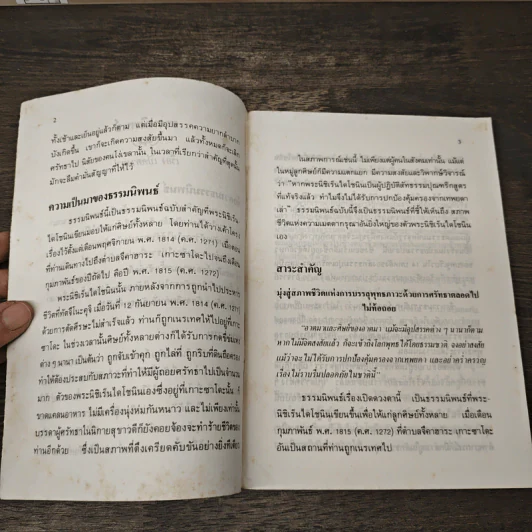 2
ทั้งเช้าและเย็นอยู่แล้วก็ตาม แต่เมื่อมีอุปสรรคความยากลำบาก
บังเกิดขึ้น เขาก็จะเกิดความสงสัยขึ้นมา แล้วทั้งหมดก็จะเลิก
ศรัทธาไป นิสัยของคนโง่เขลานั้น ในเวลาที่เรียกว่าสำคัญที่สุดนั้น
มักจะลืมคำมั่นสัญญาที่ให้ไว้
ความเป็นมาของธรรมนิพนธ์
ธรรมนิพนธ์นี้เป็นธรรมนิพนธ์ฉบับสำคัญที่พระนิชิเร็น
ไดโชนินเขียนมอบให้แก่ศิษย์ทั้งหลาย โดยท่านได้วางเค้าโครง
เรื่องไว้ตั้งแต่เดือนพฤศจิกายน พ.ศ. 1814 (ค.ศ. 1271) เมื่อตอน
ที่ท่านเดินทางไปยังตำบลจึคาฮาระ เกาะซาโดะไปจนถึงเดือน
กุมภาพันธ์ของปีถัดไป คือปี พ.ศ. 1815 (ค.ศ. 1272)
พระนิชิเร็นไดโชนินนั้น ภายหลังจากการถูกนำไปประหาร
ชีวิตที่ทัตจึโนะคุจิ เมื่อวันที่ 12 กันยายน พ.ศ. 1814 (ค.ศ. 1271)
ด้วยการตัดศีรษะไม่สำเร็จแล้ว ท่านก็ถูกเนรเทศให้ไปอยู่ที่เกาะ
ซาโดะ ในช่วงเวลานั้นศิษย์ทั้งหลายต่างก็ได้รับการกดขี่ข่มเหง
ต่าง ๆ นานา เป็นต้นว่า ถูกจับเข้าคุก ถูกไล่ที่ ถูกริบที่ดินถือครอง
ทำให้ต้องประสบกับสภาวะที่ทำให้มีผู้ถอยศรัทธาไปเป็นจำนวน
มาก ตัวของพระนิชิเร็นไดโชนินเองซึ่งอยู่ที่เกาะซาโดะนั้น ก็
ขาดแคลนอาหาร ไม่มีเครื่องนุ่งห่มกันหนาว และไม่เพียงเท่านั้น
บรรดาผู้ศรัทธาในนิกายสุขาวดีก็ยังคอยจ้องจะทำร้ายชีวิตของ
ท่านอีกด้วย ซึ่งเป็นสภาพที่ตึงเครียดคับขันอย่างยิ่งทีเดียว
3
ในสภาพการณ์เช่นนี้ ไม่เพียงแต่ผู้คนในสังคมเท่านั้น แม้แต่
ในหมู่ลูกศิษย์ก็มีความแตกแยก มีความสงสัย และวิพากษ์วิจารณ์
ว่า "หากพระนิชิเร็นไดโชนินเป็นผู้ปฏิบัติสัทธรรมปุณฑริกสูตร
ที่แท้จริงแล้ว ทำไมจึงไม่ได้รับการปกป้องคุ้มครองจากเทพยดา
เล่า" ธรรมนิพนธ์ฉบับนี้จึงเป็นธรรมนิพนธ์ที่ชี้ให้เห็นถึง สภาพ
ชีวิตแห่งความเมตตากรุณาอันยิ่งใหญ่ของตัวพระนิชิเร็นไดโชนิน
เอง
สาระสำคัญ
มุ่งสู่สภาพชีวิตแห่งการบรรลุพุทธภาวะด้วยการศรัทธาตลอดไป
ไม่ท้อถอย
"อาตมาและศิษย์ของอาตมา แม้จะมีอุปสรรคต่าง ๆ นานาก็ตาม
หากไม่มีจิตสงสัยแล้ว ก็จะเข้าถึงโลกพุทธได้โดยธรรมชาติ จงอย่าสงสัย
แม้ว่าจะไม่ได้รับการปกป้องคุ้มครองจากเทพยดา และอย่าคร่ำครวญ
เรื่องไม่ราบรื่นปลอดภัยในชาตินี้"
ธรรมนิพนธ์เรื่องเปิดดวงตานี้ เป็นธรรมนิพนธ์ที่พระ
นิชิเร็นไดโชนินเขียนขึ้นเพื่อให้แก่ลูกศิษย์ทั้งหลาย เมื่อเดือน
กุมภาพันธ์ พ.ศ. 1815 (ค.ศ. 1272) ที่ตำบลจึคาฮาระ เกาะซาโดะ
อันเป็นสถานที่ที่ท่านถูกเนรเทศ